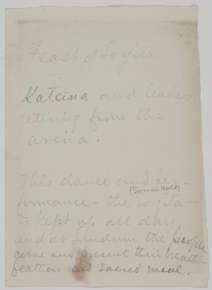 Feast of Soyita.
Kateina and leader
retiring from the
arena.
This dance and per-
formance - the soyita -
is kept up all day
and at sundown the people
come and present their breath
feathers and sacred meal.